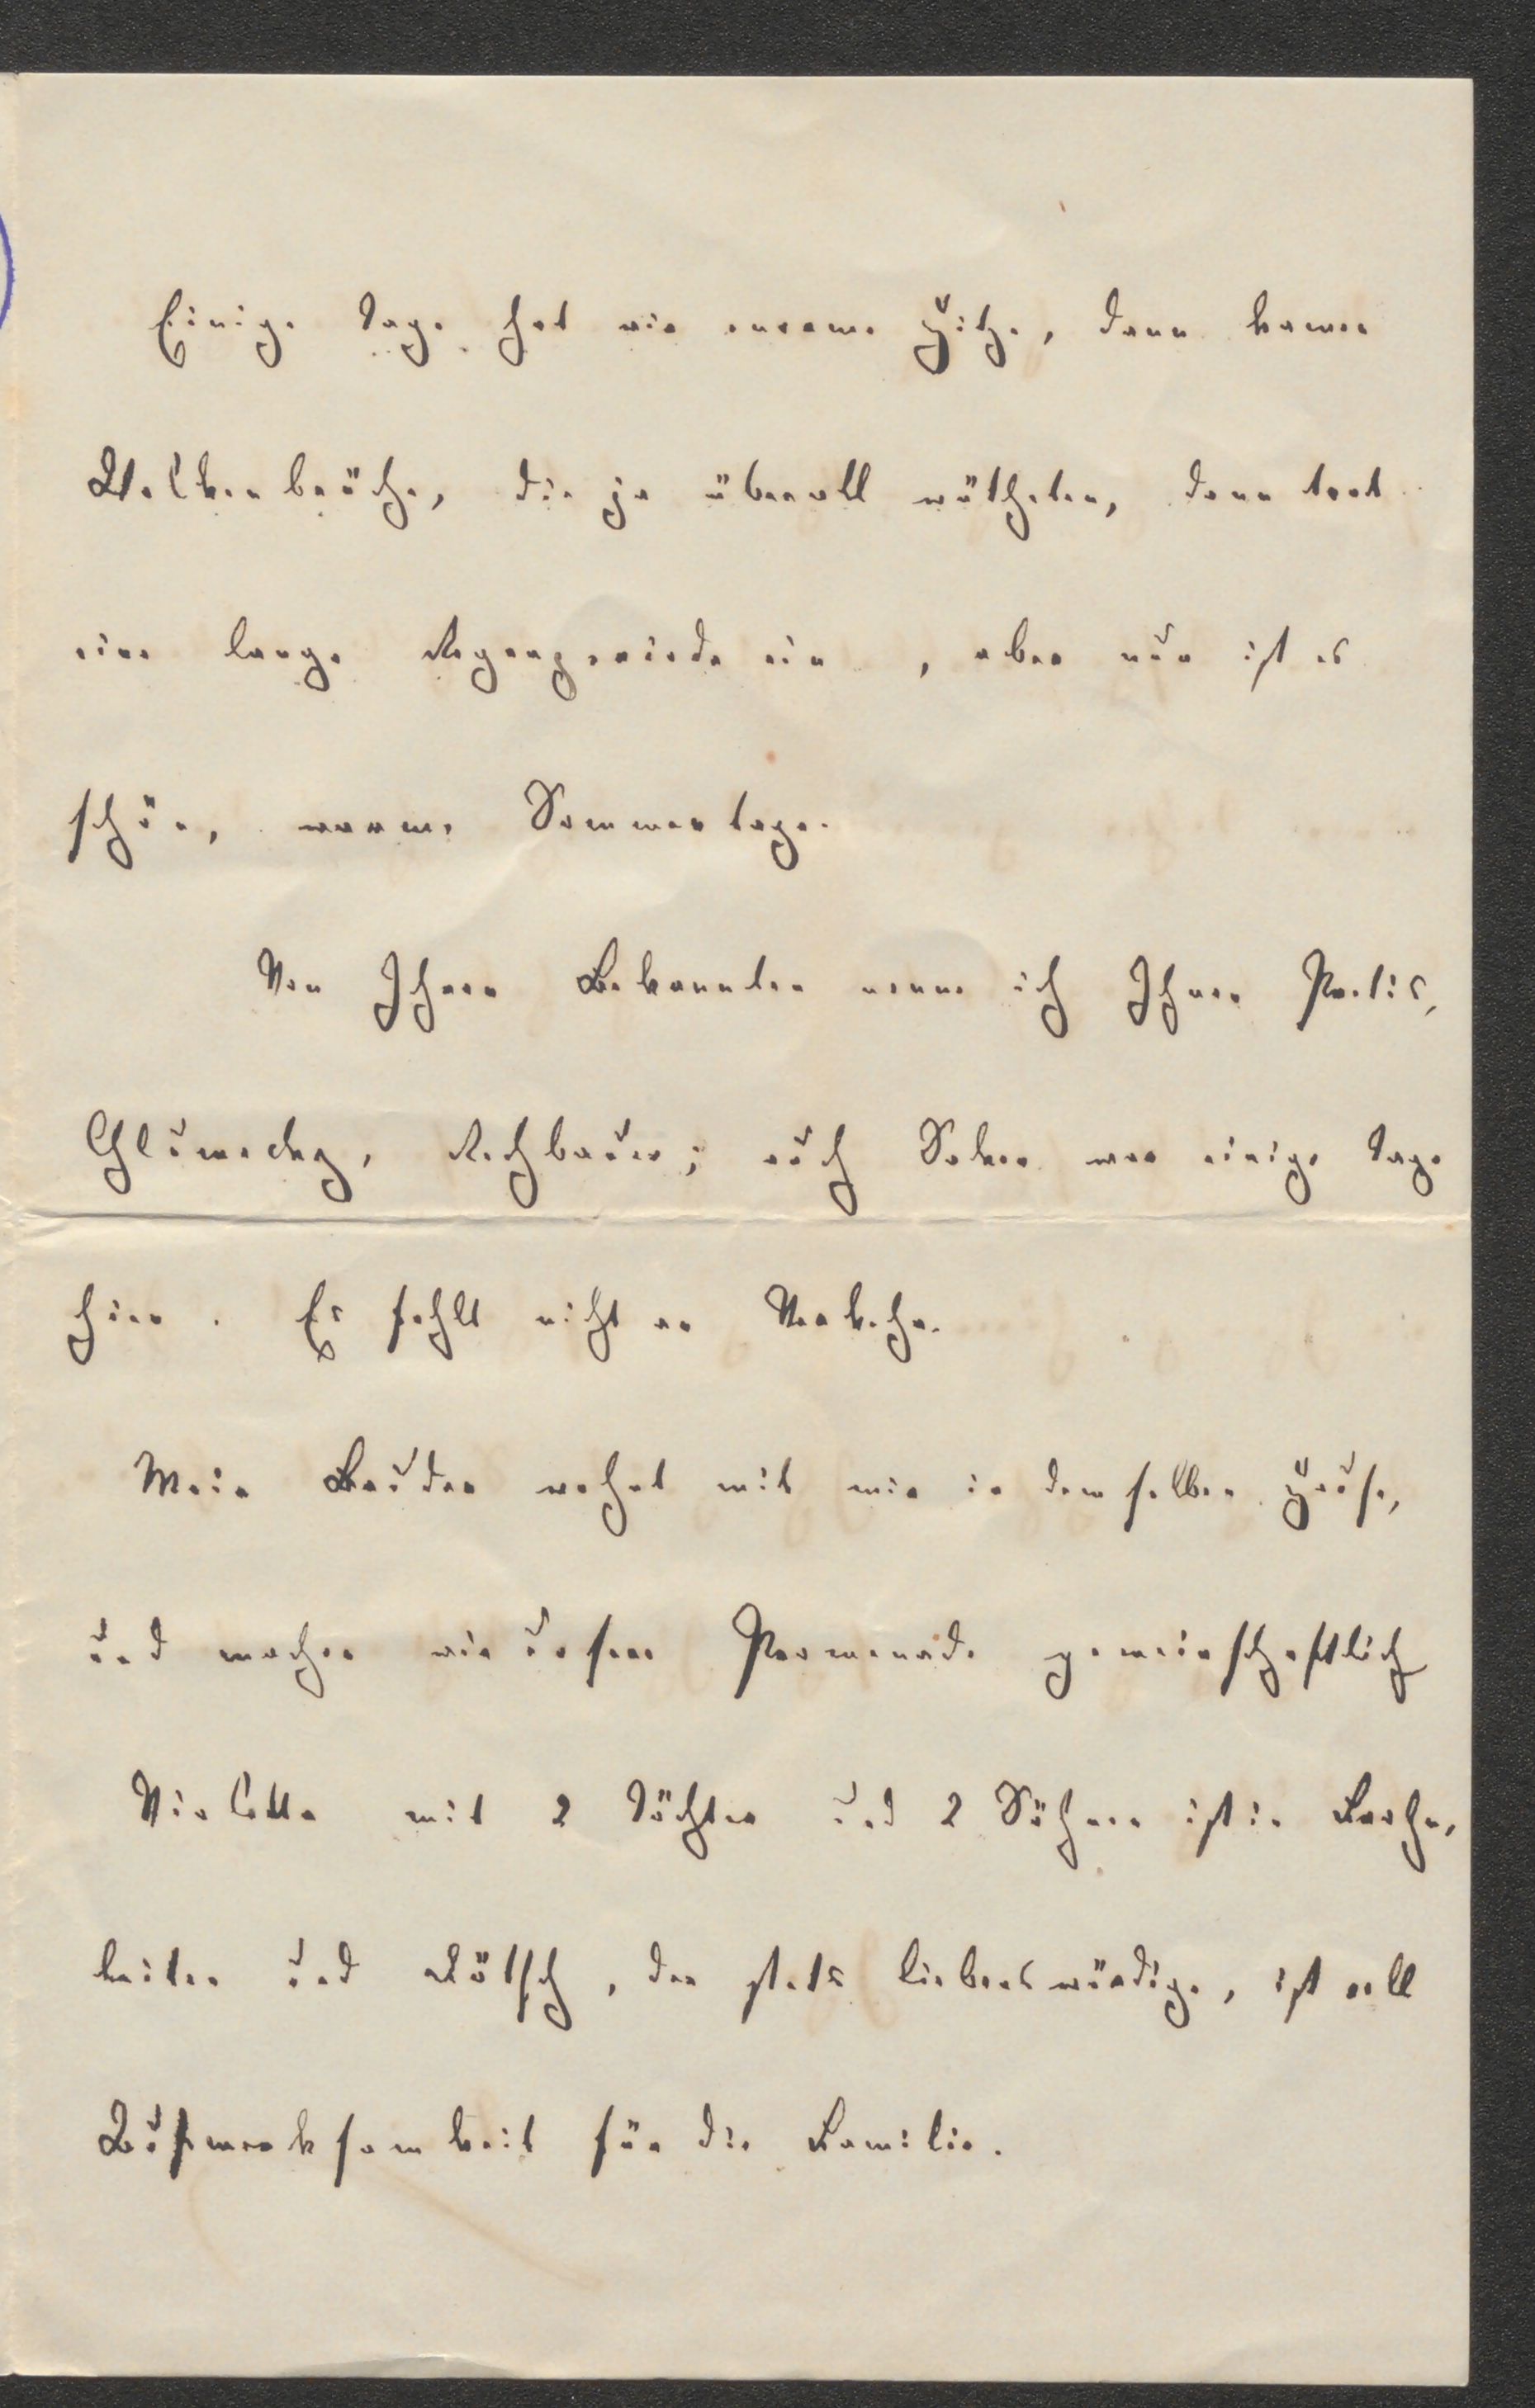 Einige Tage hat wir enorme Hitze, dann kamen
Wolkenbrüche, die ja überall wütheten, dann trat
eine lange Regenperiode ein, aber nun ist es
schön, warme Sommertage.
Von Ihren Bekannten nenne ich Ihnen Portis,
Chlumecky, Rechbauer; auch war einige Tage
hier. Es fehlt nicht an Verkehr.
Mein Bruder wohnt mit mir in demselben Hause,
und machen wir unsere Promenade gemeinschaftlich
mit 2 Töchter und 2 Söhnen ist in
und, der stets liebenswürdige, ist voll
Aufmerksamkeit für die Familie.